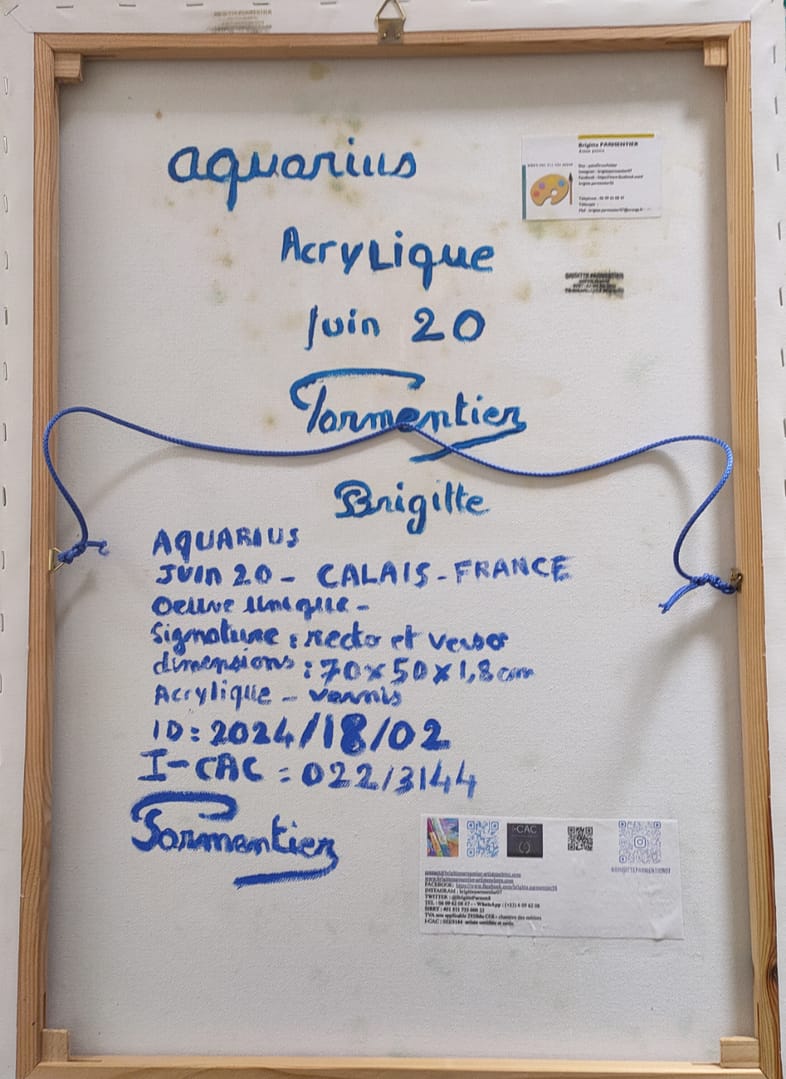 aquarius
Brigitte PARMENTIER
Acrylique
BRIGITTE PARMENTIER
Juin 20
Parmentier
Brigitte
AQUARIUS
JUIN 20 - CALAIS - FRANCE
Oeuvre unique -
Signature : recto et verso
dimensions : 70 x 50 x 1,8 cm
Acrylique - vernis
ID : 2024/18/02
I-CAC : 022/3144
Parmentier
I-CAC
@BRIGITTEPARMENTIER07
www.brigitteparmentier-artistepeintre.com
INSTAGRAM : brigitteparmentier07